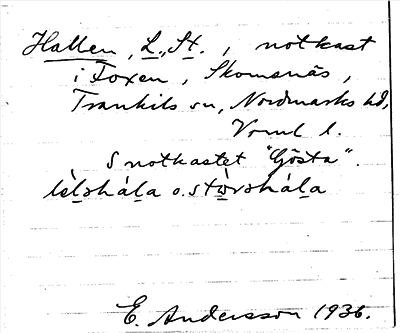 Hallen, L., St., notkast
i Foxen, Skomsnäs,
Trankils sn, Nordmarks hd,
Vrml l.
S notkastet "Gösta".
lèlshála o. stòrshála
E. Andersson 1936.